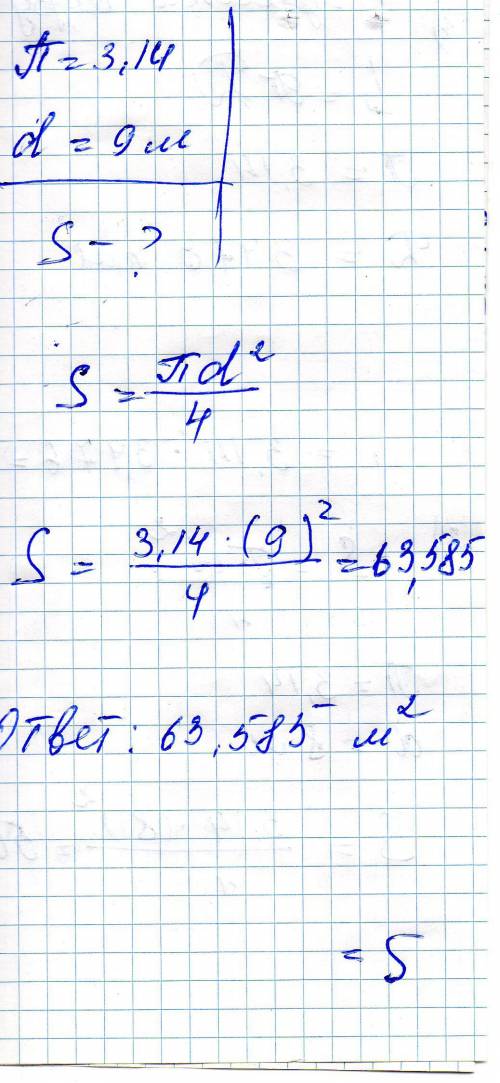 π = 3,14
d = 9 м
S - ?
S = πd²/4
S = 3,14 · (9)²/4 = 63,585
Ответ: 63,585 м²
= S